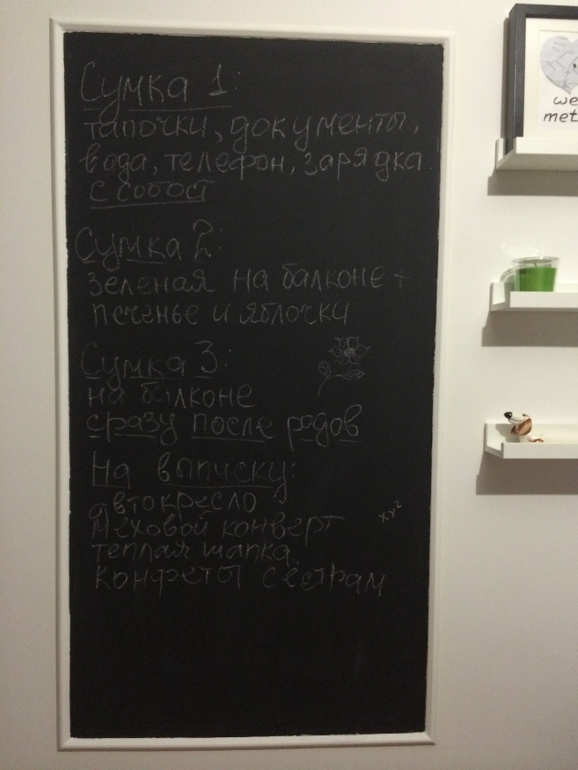 Сумка 1:
тапочки, документы,
вода, телефон, зарядка
с собой
Сумка 2:
зеленая на балконе +
печенье и яблочки
Сумка 3:
на балконе
сразу после родов
На выписку:
автокресло
меховой конверт
теплая шапка
конфеты сестрам
we
met